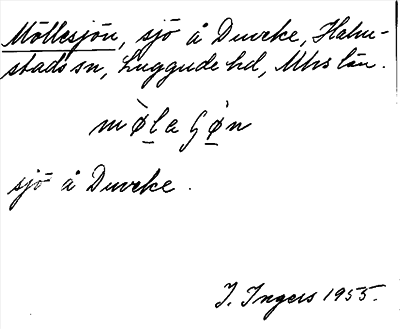 Möllesjön, sjö å Duveke, Halm-
stads sn, Luggude hd, Mhs län.
mø̀laʃø̀n
sjö å Duveke.
I. Ingers 1955.